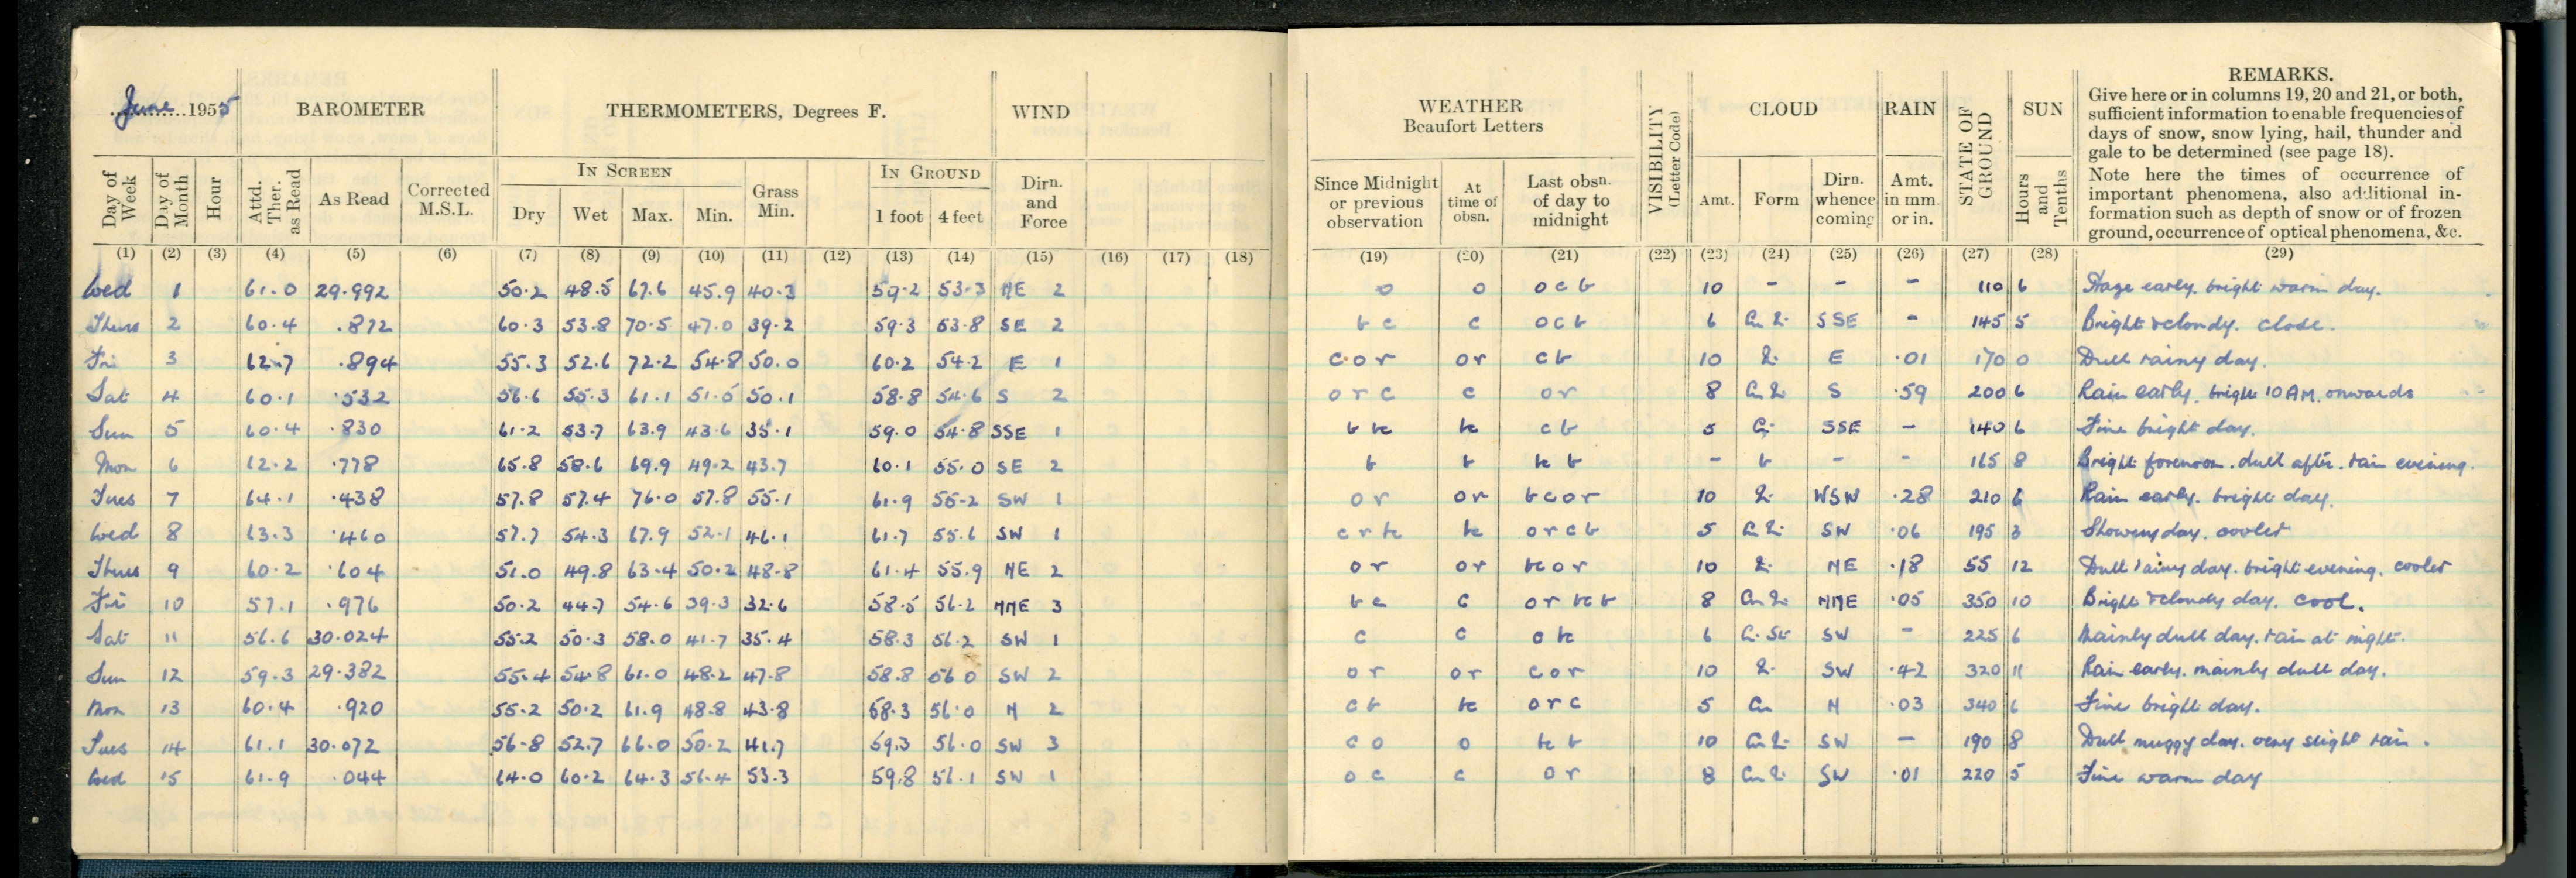 June 1955 BAROMETER THERMOMETERS, Degrees F. WIND
Day of Week Day of Month Hour Attd. Ther. as Read As Read Corrected M.S.L. IN SCREEN Dry Wet Max. Min. Grass Min. IN GROUND 1 foot 4 feet Dirn. and Force
(1) (2) (3) (4) (5) (6) (7) (8) (9) (10) (11) (12) (13) (14) (15) (16) (17) (18)
Wed 1 61.0 29.992 50.2 48.5 67.6 45.9 40.3 59.2 53.3 NE 2
Thurs 2 60.4 .872 60.3 53.8 70.5 47.0 39.2 59.3 53.8 SE 2
Fri 3 62.7 .894 55.3 52.6 72.2 54.8 50.0 60.2 54.2 E 1
Sat 4 60.1 .532 56.6 55.3 61.1 51.5 50.1 58.8 54.6 S 2
Sun 5 60.4 .830 61.2 53.7 63.9 43.6 35.1 59.0 54.8 SSE 1
Mon 6 62.2 .778 65.8 58.6 69.9 49.2 43.7 60.1 55.0 SE 2
Tues 7 64.1 .438 57.8 57.4 76.0 57.8 55.1 61.9 55.2 SW 1
Wed 8 63.3 .460 57.7 54.3 67.9 52.1 46.1 61.7 55.6 SW 1
Thurs 9 60.2 .604 51.0 49.8 63.4 50.2 48.8 61.4 55.9 NE 2
Fri 10 57.1 .976 50.2 44.7 54.6 39.3 32.6 58.5 56.2 NNE 3
Sat 11 56.6 30.024 55.2 50.3 58.0 41.7 35.4 58.3 56.2 SW 1
Sun 12 59.3 29.382 55.4 54.8 61.0 48.2 47.8 58.8 56 0 SW 2
Mon 13 60.4 .920 55.2 50.2 61.9 48.8 43.8 58.3 56.0 N 2
Tues 14 61.1 30.072 56.8 52.7 66.0 50.2 41.7 59.3 56.0 SW 3
Wed 15 61.9 .044 64.0 60.2 64.3 56.4 53.3 59.8 56.1 SW 1
WEATHER Beaufort Letters VISIBILITY (Letter Code) CLOUD RAIN STATE OF GROUND SUN REMARKS.
Since Midnight or previous observation At time of obsn. Last obsn. of day to midnight Amt. Form Dirn. whence coming Amt. in mm. or in. Hours and Tenths
Give here or in columns 19, 20 and 21, or both,
sufficient information to enable frequencies of
days of snow, snow lying, hail, thunder and
gale to be determined (see page 18).
Note here the times of occurrence of
important phenomena, also additional in-
formation such as depth of snow or of frozen
ground, occurrence of optical phenomena, &c.
(19) (20) (21) (22) (23) (24) (25) (26) (27) (28) (29)
o o o c b 10 - - - 110 6 Haze early. bright warm day.
b c c o c b 6 SSE - 145 5 Bright & cloudy. close.
c o r o r c b 10 E .01 170 0 Dull rainy day.
o r c c o r 8 S .59 200 6 Rain early. bright 10 AM. onwards
b bc bc c b 5 Ci SSE - 140 6 Fine bright day.
b b bc b - b - - 165 8 Bright forenoon. dull after. rain evening.
o r o r b c o r 10 WSW .28 210 6 Rain early. bright day.
c r bc bc o r c b 5 SW .06 195 3 Showery day. cooler
o r o r bc o r 10 NE .18 55 12 Dull rainy day. bright evening. cooler
b c c o r bc b 8 NNE .05 350 10 Bright & cloudy day. cool.
c c o bc 6 SW - 225 6 Mainly dull day. rain at night.
o r o r c o r 10 SW .42 320 11 Rain early. mainly dull day.
c b bc o r c 5 Cu N .03 340 6 Fine bright day.
c o o bc b 10 SW - 190 8 Dull muggy day. very slight rain.
o c c o r 8 SW .01 220 5 Fine warm day